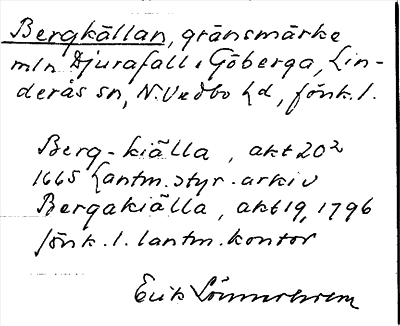 Bergkällan, gränsmärke
mln Djurafall o Göberga, Lin-
derås sn, N. Vedbo hd, Jönk. l.
Berg-kiälla, akt 20²
1665 Lantm. styr. arkiv
Bergakiälla, akt 19, 1796
Jönk. l. lantm. kontor
Erik